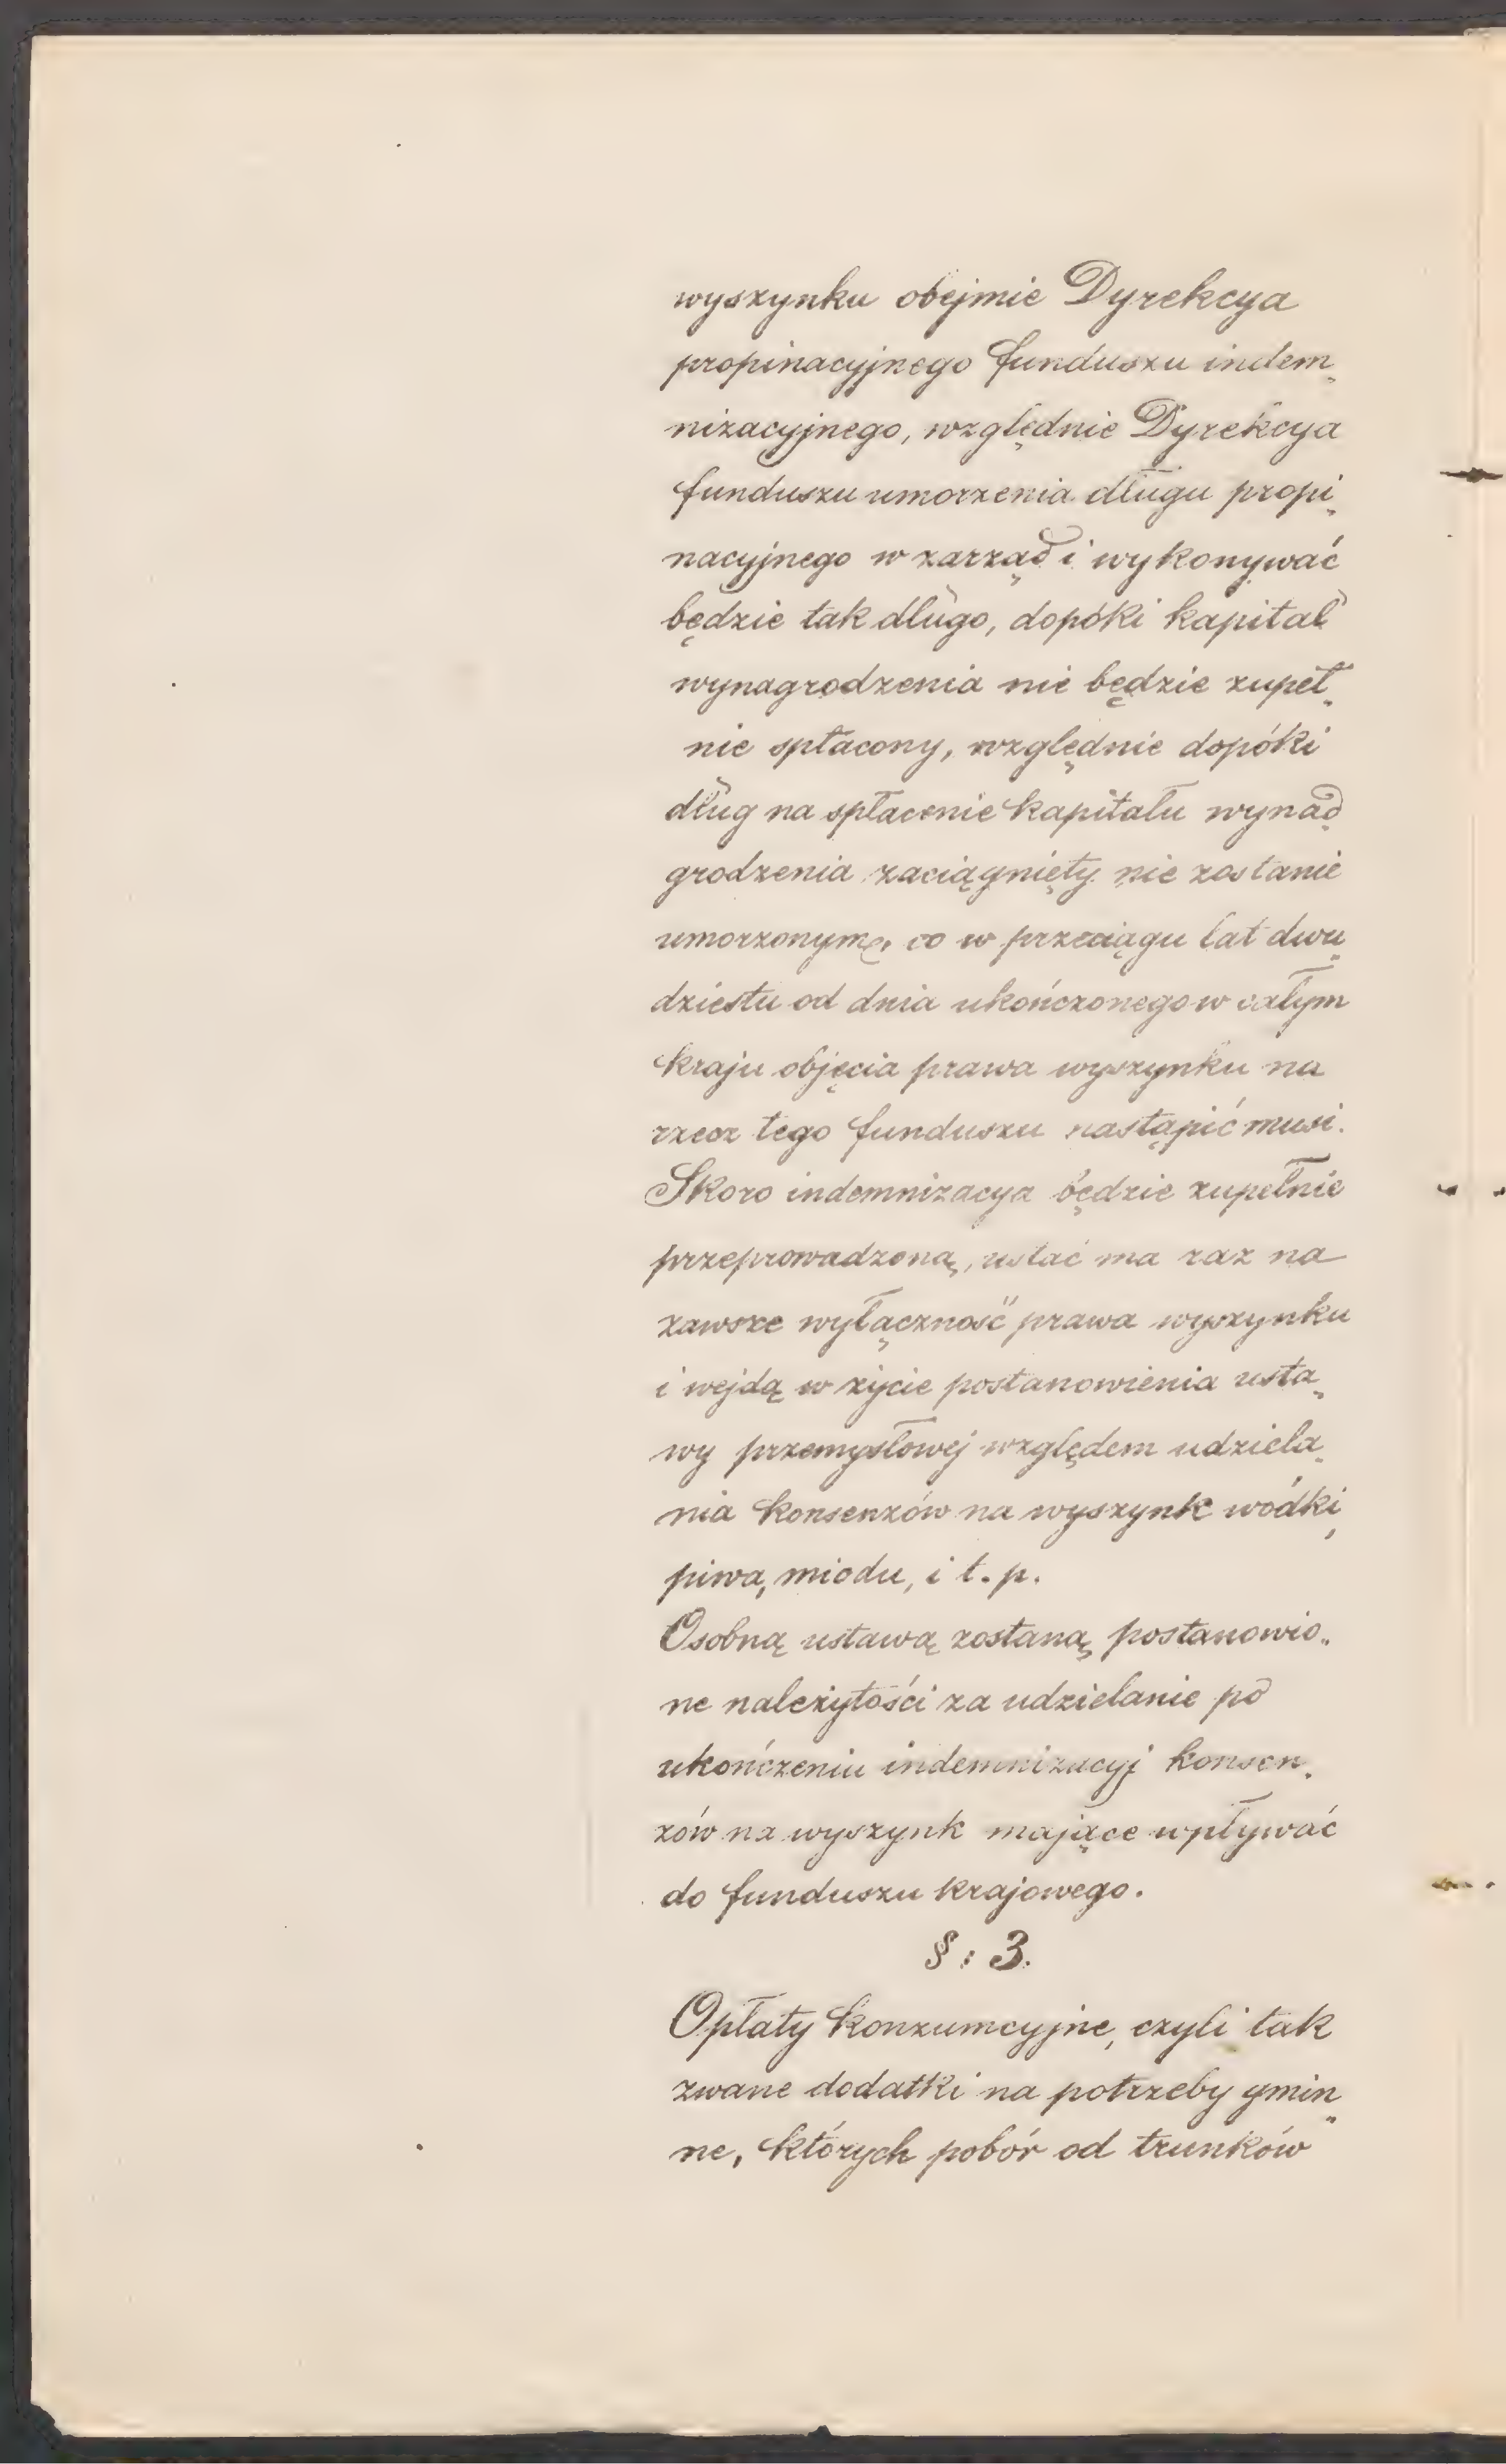 wyszynku obejmie Dyrekcya
propinacyjnego funduszu indem„
nizacyjnego, względnie Dyrekcya
funduszu umorzenia długu propi„
nacyjnego w zarząd i wykonywać
będzie tak długo, dopóki kapitał
wynagrodzenia nie będzie zupeł„
nie spłacony, względnie dopóki
dług na spłacenie kapitału wynad
grodzenia zaciągnięty nie zostanie
umorzonym, co w przeciągu lat dwu„
dziestu od dnia ukończonego w całym
kraju objęcia prawa wyszynku na
rzecz tego funduszu nastąpić musi.
Skoro indemnizacya będzie zupełnie
przeprowadzoną, ustać ma raz na
zawsze wyłączność prawa wyszynku
i wejdą w życie postanowienia usta„
wy przemysłowej względem udziela„
nia konsenzów na wyszynk wódki,
piwa, miodu, i t. p.
Osobną ustawą zostaną postanowio„
ne należytości za udzielanie po
ukończeniu indemnizacyj konsen„
zów na wyszynk mające wpływać
do funduszu krajowego.
§: 3.
Opłaty konzumcyjne, czyli tak
zwane dodatki na potrzeby gmin„
ne, których pobór od trunków